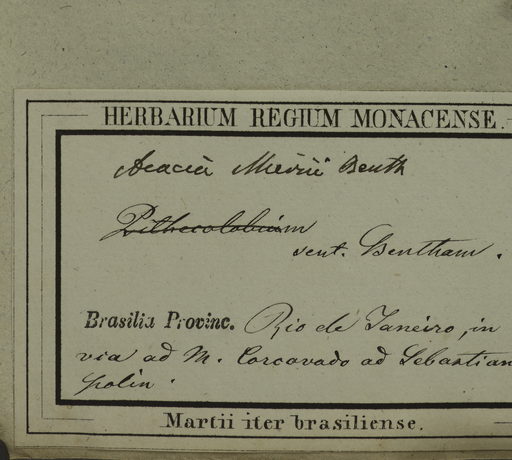 HERBARIUM REGIUM MONACENSE.
Acacia Miersii Benth
Pithecolobium
sent. Bentham.
Brasilia Provinc. Rio de Janeiro, in
via ad M. Corcovado ad Sebastian
polin.
Martii iter brasiliense.